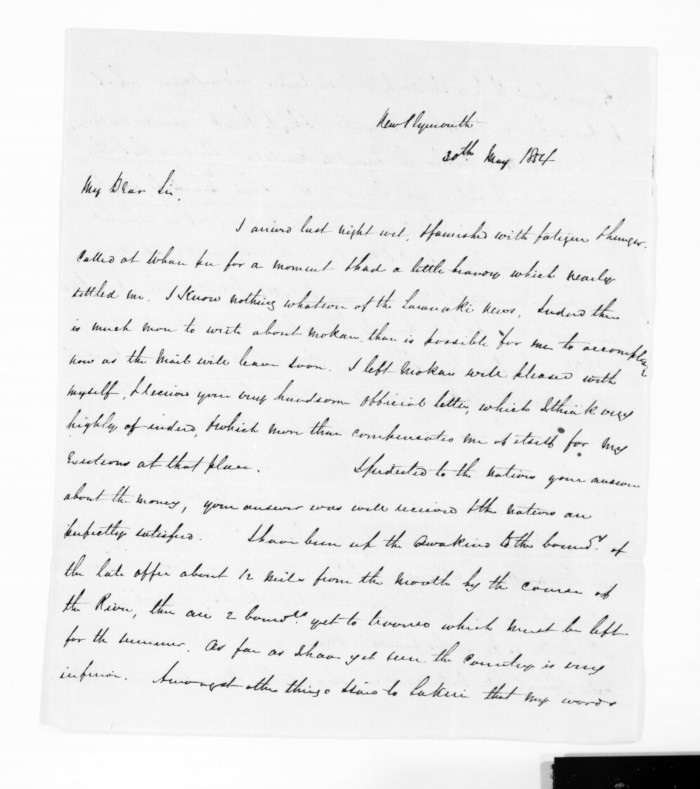 New Plymouth
30th May 1854
My Dear Sir,
I arrived last night wet, & famished with fatigue & hunger.
Called at for a moment & had a little which nearly
settled me. I know nothing whatever of the Taranaki news. Indeed there
is much more to write about Mokau, than is possible for me to accomplish
now as the Mail will leave soon. I left Mokau well pleased with
myself, & received your very handsome official letter, which I think very
highly of indeed, & which more than compensates me of itself for my
Exertions at that place. I to the natives your answer
about the money, your answer was well received & the natives are
perfectly satisfied. I have been up the Awakino to the boundy. of
the late offer about 12 miles from the mouth by the course of
the River, there are 2 yet to traverse which must be left
for the summer. As far as I have yet seen the Country is very
inferior. Amongst other things I to Takiri that my words